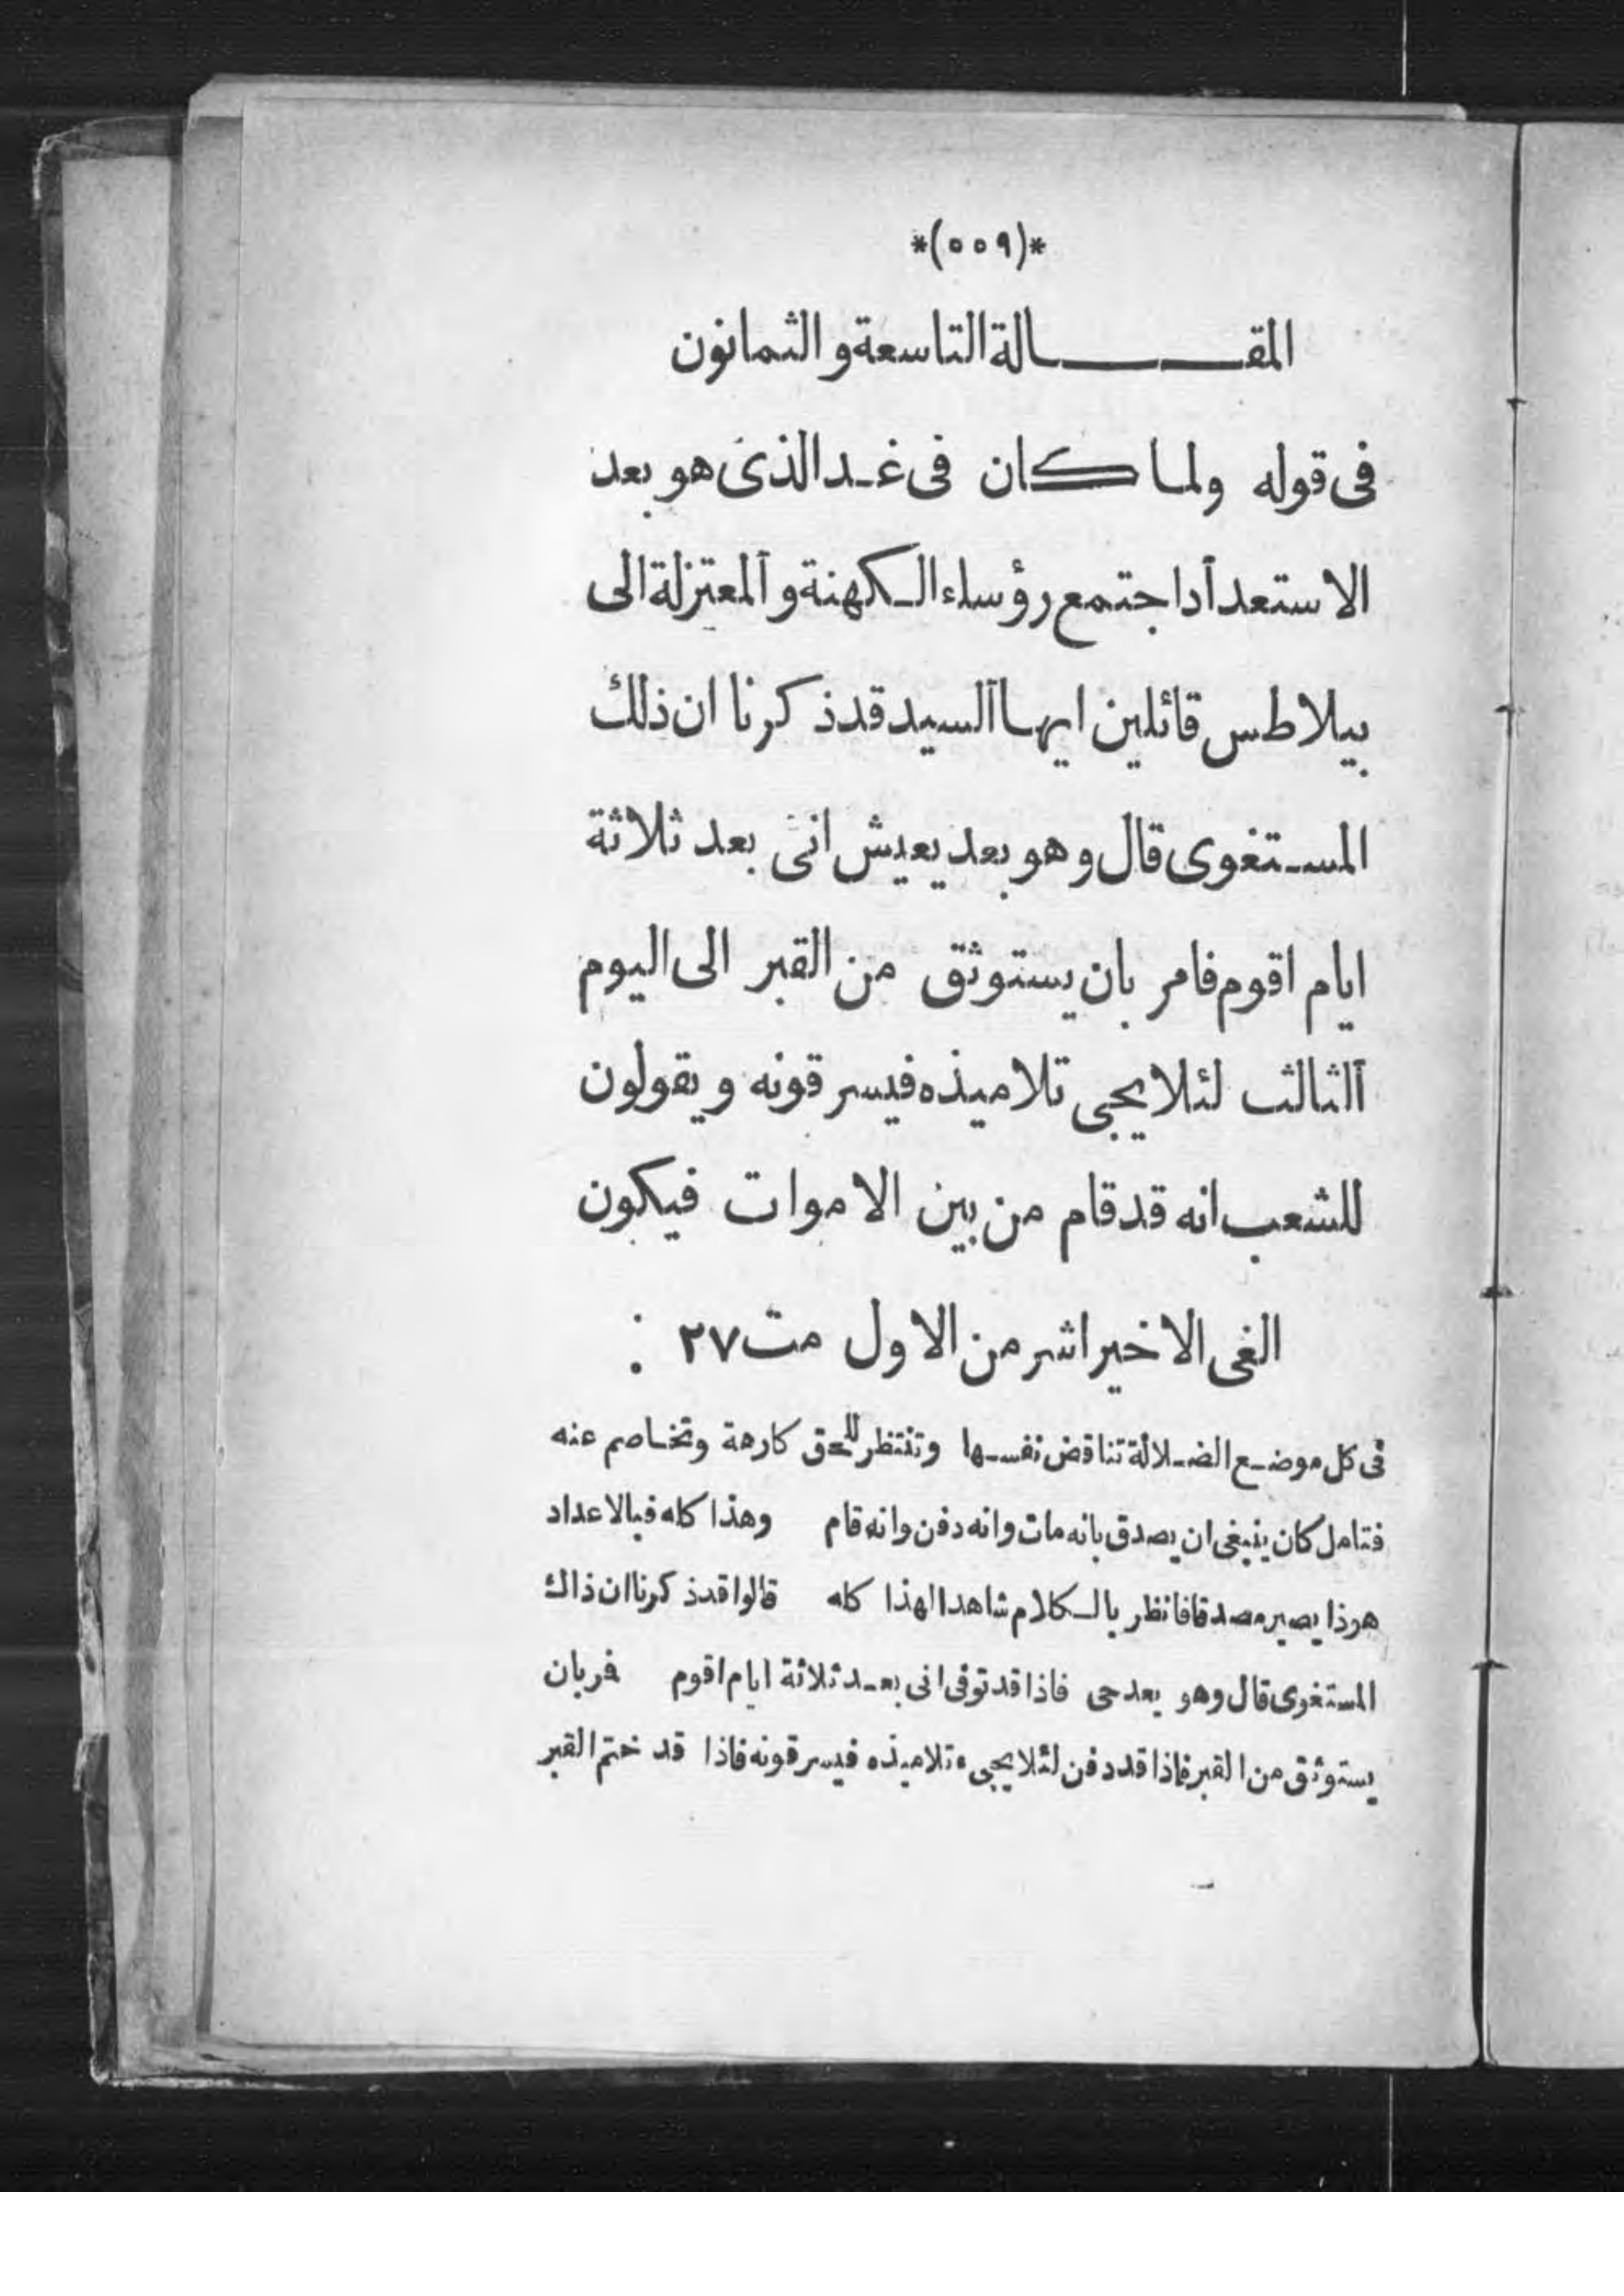 *(٥٥٩)*
المقـــــــالة التاسعة و الثمانون
فى قوله ولما كان فى غـد الذى هو بعد
الاستعدآد اجتمع رؤساء الـكهنة و آلمعتزلة الى
بيلاطس قائلين ايها آلسيد قد ذكرنا ان ذلك
المسـتغوى قال و هو بعد يعيش انى بعد ثلاثة
ايام اقوم فامر بان يستوثق من القبر الى اليوم
آلثالث لئلا يجى تلاميذه فيسرقونه و يقولون
للشعب انه قد قام من بين الاموات فيكون
الغى الاخير اشر من الاول مت ٢٧ :
فى كل موضـع الضـلالة تناقض نفسـها وتنتظر للحق كارهة وتخاصم عنه
فتامل كان ينبغى ان يصدق بانه مات وانه دفن وانه قام وهذا كله فبالاعداد
هوذا يصير مصدقا فانظر بالـكلام شاهدا لهذا كله قالوا قد ذكرنا ان ذاك
المستغوى قال وهو بعد حى فاذا قد توفى انى بعـد ثلاثة ايام اقوم فر بان
يستوثق من القبر فاذا قد دفن لئلا يجىء تلاميذه فيسرقونه فاذا قد ختم القبر